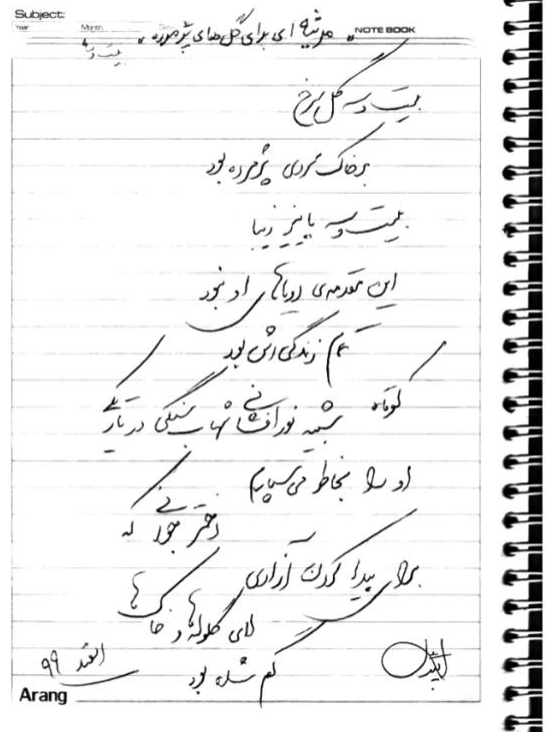 Subject:
Year Month NOTE BOOK
" مرثیه ای برای گل های پژمرده "
بیست و سه گل سرخ
بر خاک سردی پژمرده بود
بیست و سه پاییز زیبا
این مقدمه‌ی رویاهای او نبود
تمام زندگی اش بود
کوتاه
شبیه نورافشانی شهاب سنگی در تاریکی
او را بخاطر می‌سپاریم
دختر جوانی که
برای پیدا کردن آزادی
لای گلوله‌ها و خاک‌ها
گم شده بود
اسفند ۹۹
Arang